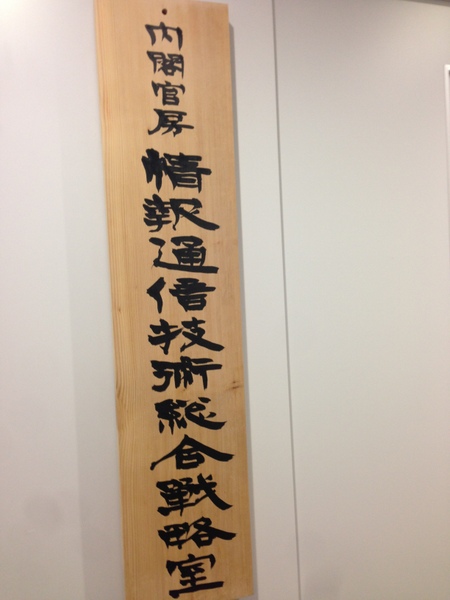 内閣官房
情報通信技術総合戦略室